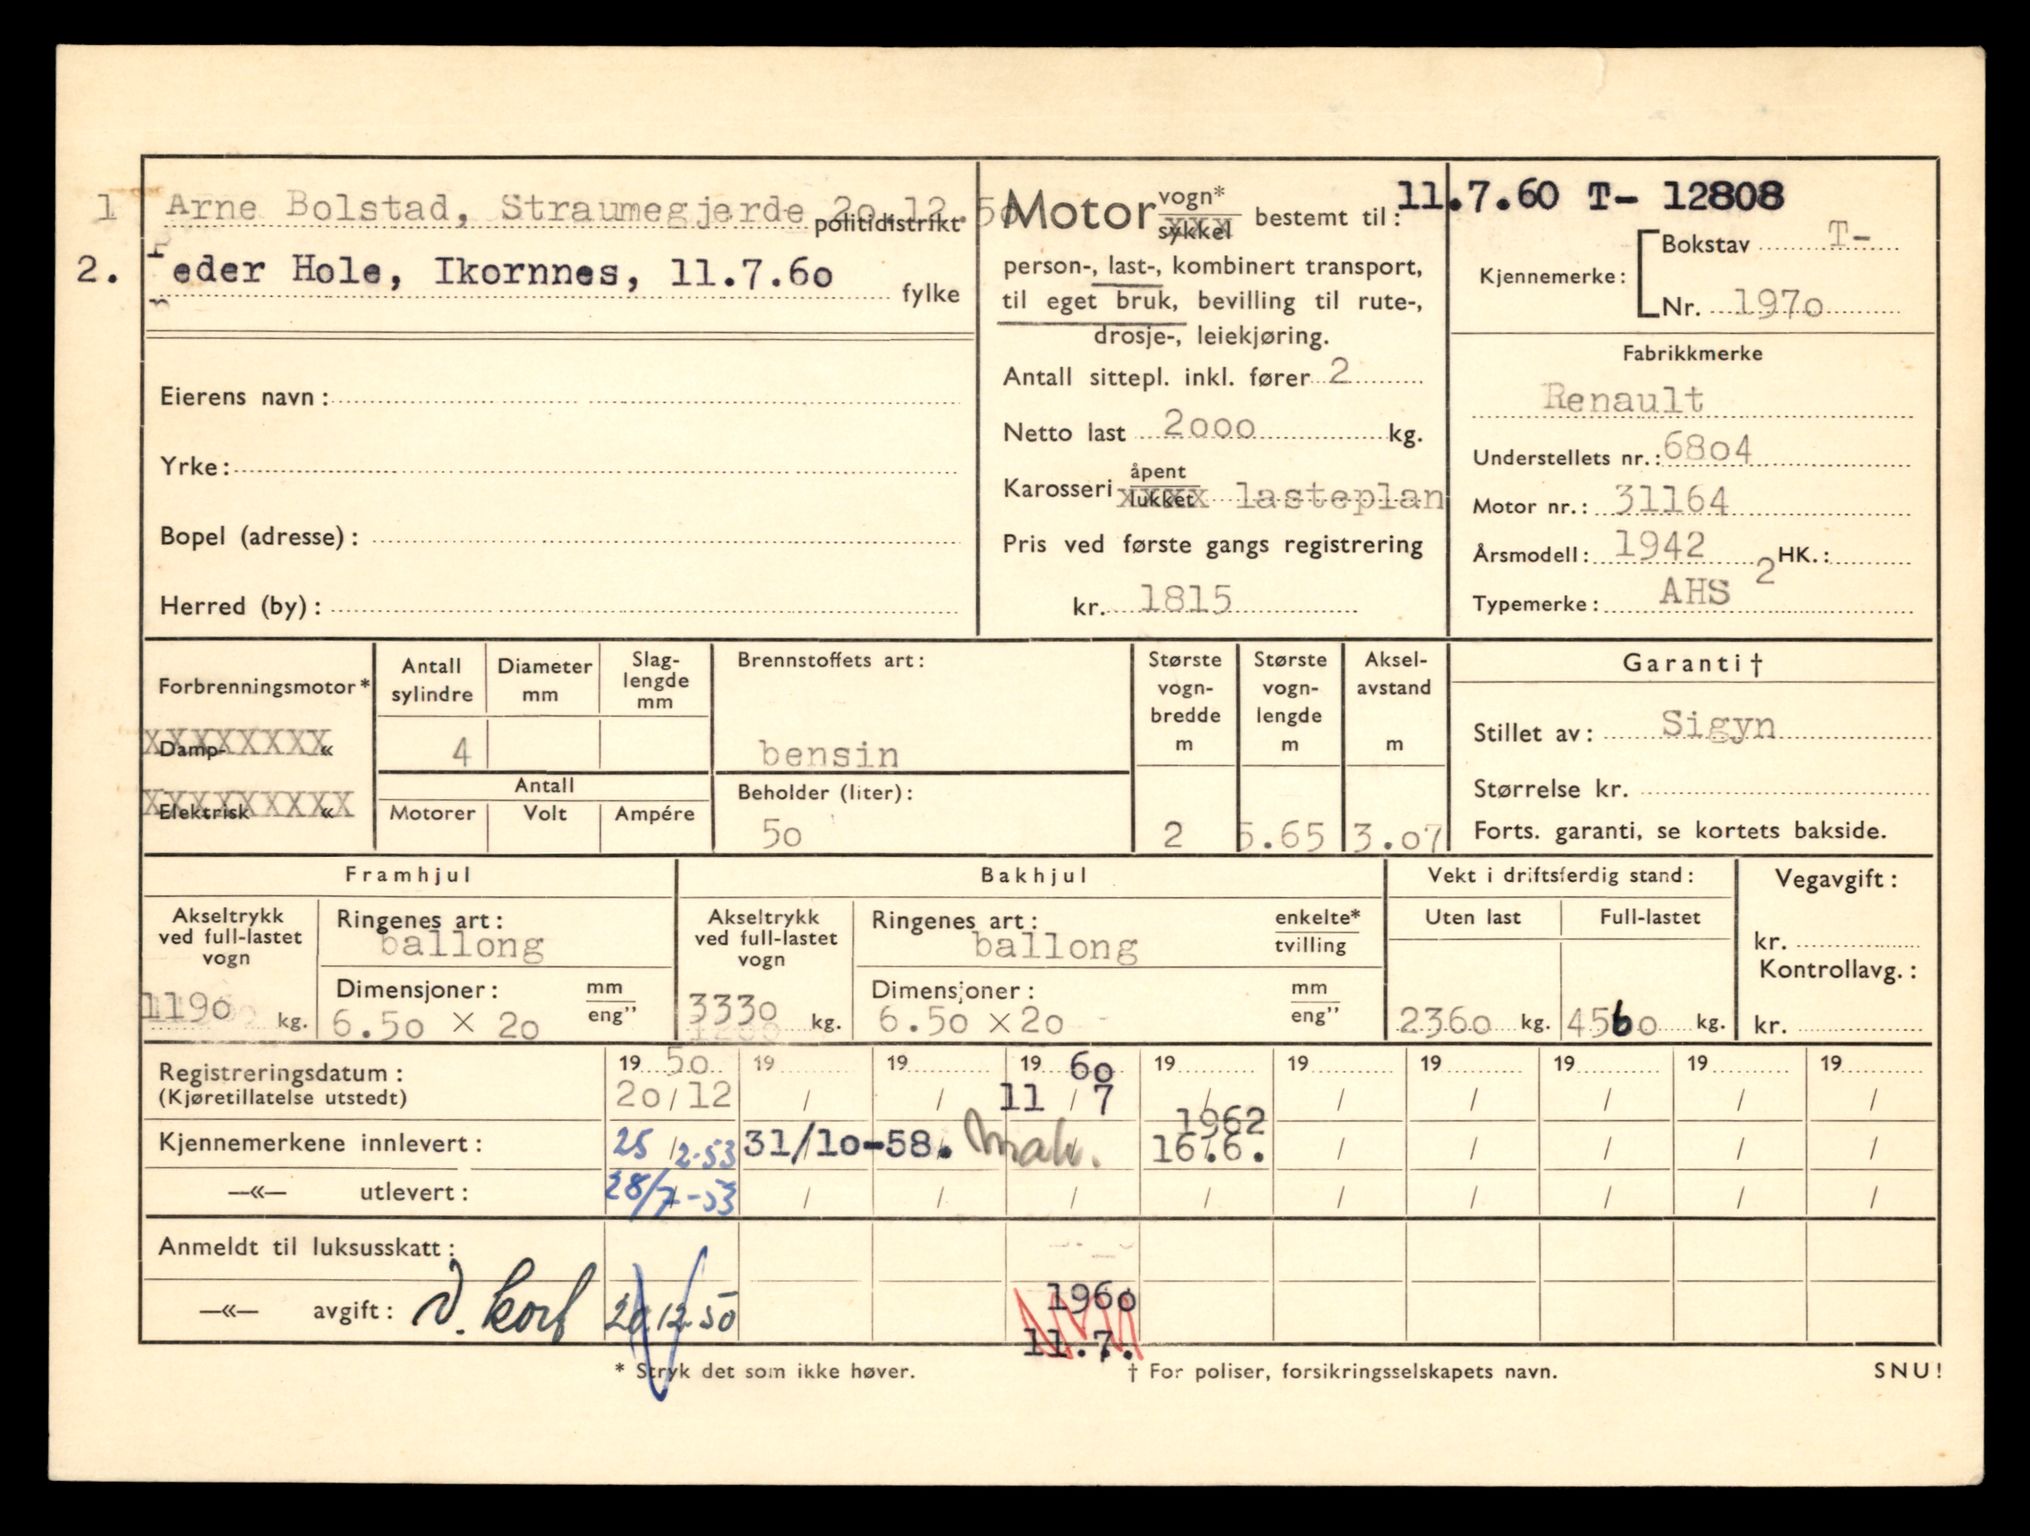 1 Arne Bolstad, Straumegjerde 20.12.50
politidistrikt
2. Peder Hole, Ikornnes, 11.7.60
fylke
Eierens navn:
Yrke:
Bopel (adresse):
Herred (by):
Motor vogn* sykkel bestemt til:
person-, last-, kombinert transport,
til eget bruk, bevilling til rute-,
drosje-, leiekjøring.
Antall sittepl. inkl. fører 2
Netto last 2000 kg.
Karosseri åpent lukket lasteplan
Pris ved første gangs registrering
kr. 1815
11.7.60 T- 12808
Kjennemerke: Bokstav T-
Nr. 1970
Fabrikkmerke
Renault
Understellets nr.: 6804
Motor nr.: 31164
Årsmodell: 1942 HK.:
Typemerke: AHS 2
Forbrenningsmotor*
XXXXXXXX
Damp- «
XXXXXXXXX
Elektrisk «
Antall sylindre
Diameter mm
Slag-lengde mm
4
Antall
Motorer Volt Ampére
Brennstoffets art:
bensin
Beholder (liter):
50
Største vogn-bredde m
2
Største vogn-lengde m
5.65
Aksel-avstand m
3.07
Garanti †
Stillet av: Sigyn
Størrelse kr.
Forts. garanti, se kortets bakside.
Framhjul
Akseltrykk ved full-lastet vogn
1190 kg.
Ringenes art:
ballong
Dimensjoner: mm eng”
6.50 X 20
Bakhjul
Akseltrykk ved full-lastet vogn
3330 kg.
Ringenes art: enkelte* tvilling
ballong
Dimensjoner: mm eng”
6.50 X 20
Vekt i driftsferdig stand:
Uten last Full-lastet
2360 kg. 4560 kg.
Vegavgift:
kr.
Kontrollavg.:
kr.
19 50 19 19 19 60 19 19 19 19 19
Registreringsdatum:
(Kjøretillatelse utstedt)
20/12 / / 11/7 / / / / /
1962
Kjennemerkene innlevert: 25/2-53 31/10-58. 16.6. / / / /
—«— utlevert: 28/7-53 / / / / / / / /
Anmeldt til luksusskatt:
1960
—«— avgift: 20.12.50 11.7.
* Stryk det som ikke høver.
† For poliser, forsikringsselskapets navn.
SNU!